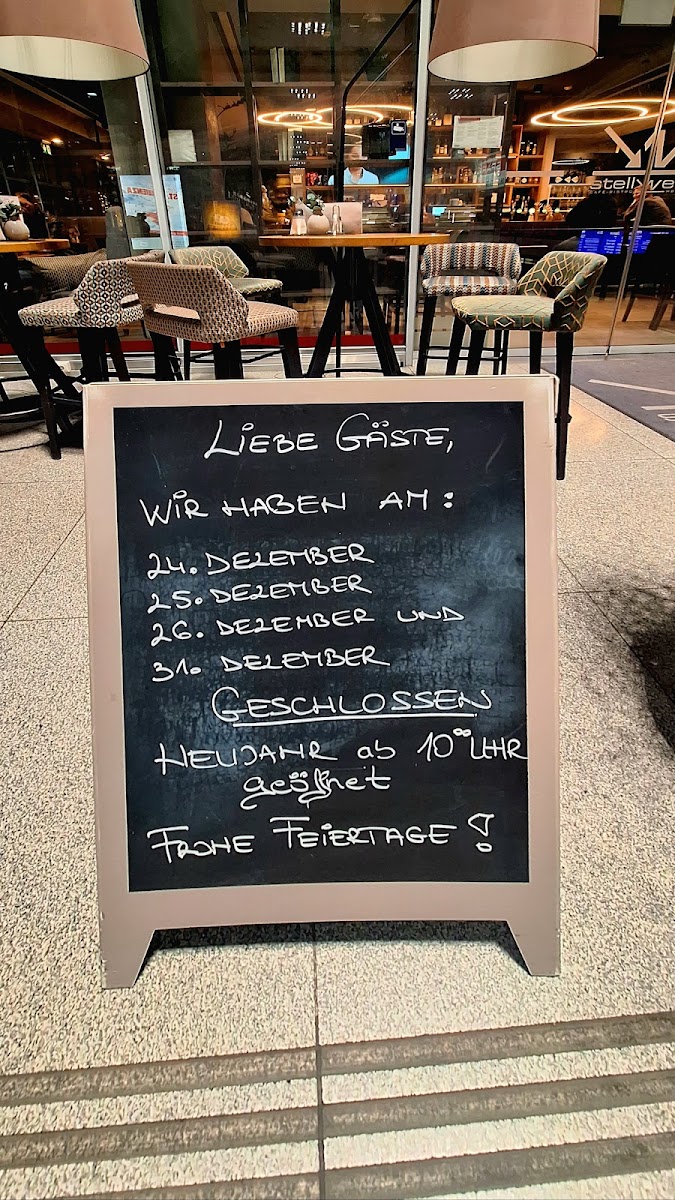 stellwe
LIEBE GÄSTE,
WIR HABEN AM:
24. DEZEMBER
25. DEZEMBER
26. DEZEMBER UND
31. DEZEMBER
GESCHLOSSEN
NEUJAHR ab 10⁰⁰ UHR
geöffnet
FROHE FEIERTAGE!